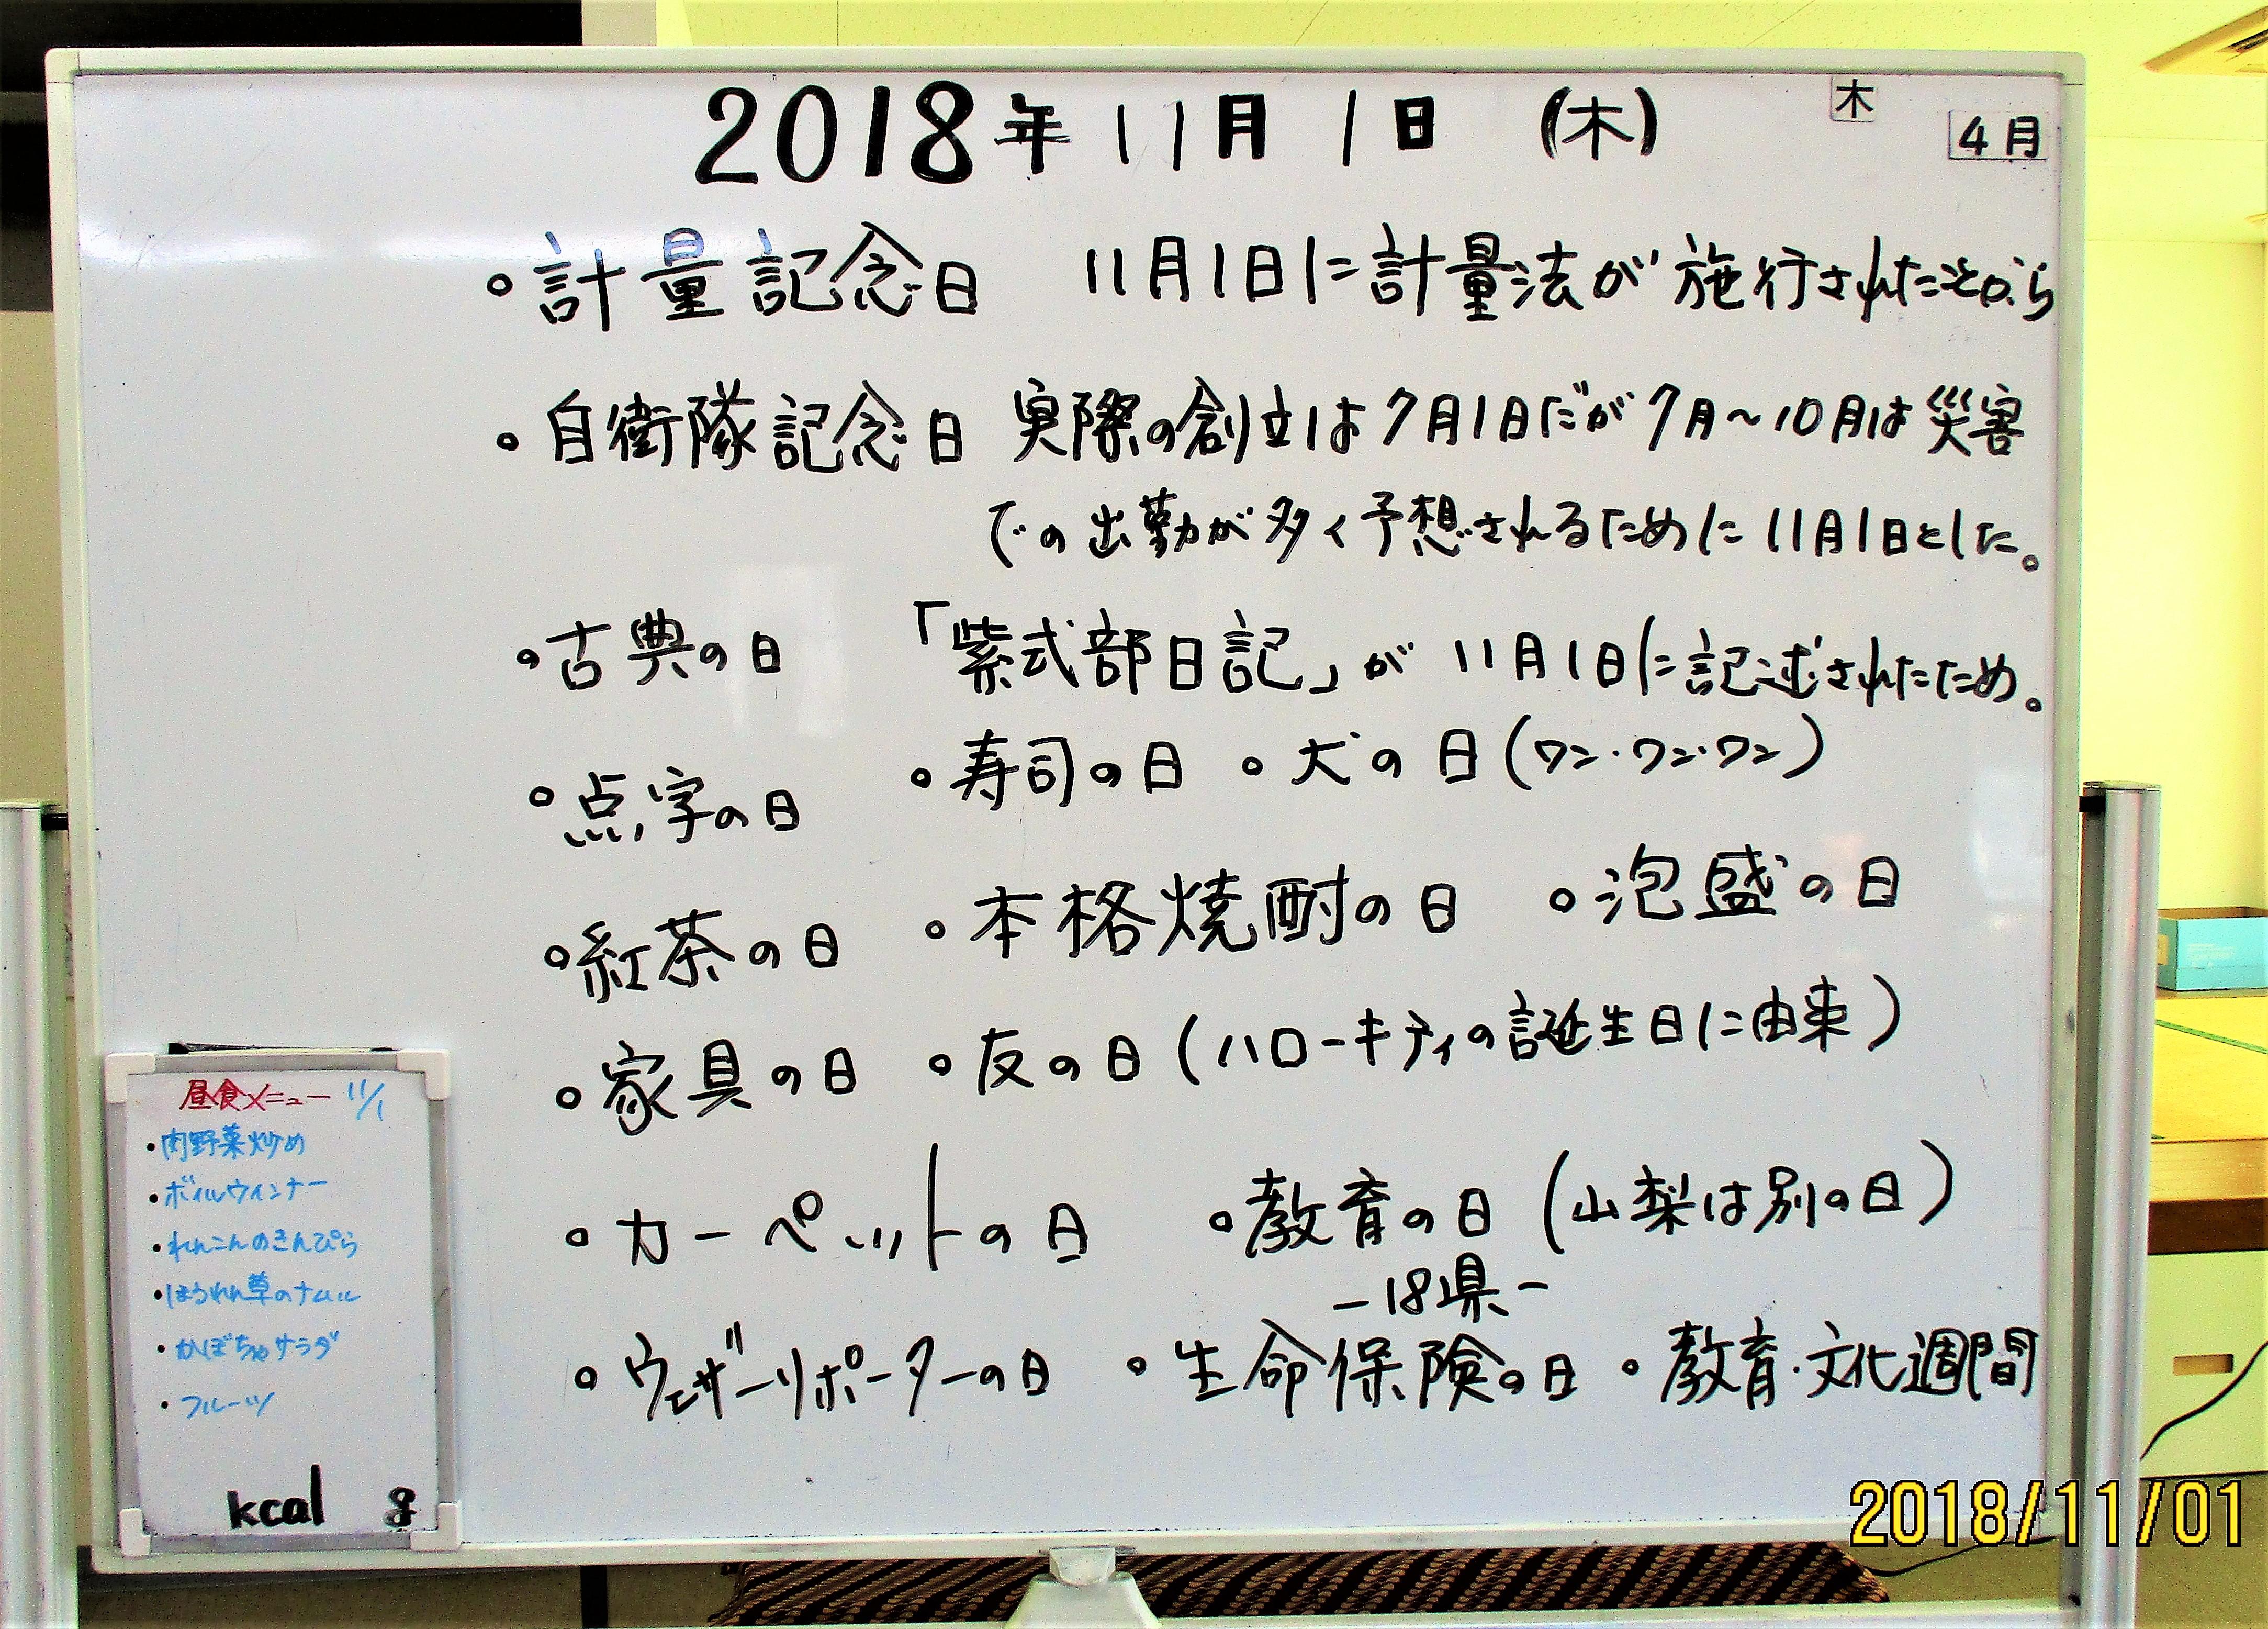 2018年 11月 1日 (木)
木
4月
。計量記念日 11月1日に計量法が施行されたことから
。自衛隊記念日 実際の創立は7月1日だが7月～10月は災害
での出勤が多く予想されるために11月1日とした。
。古典の日 「紫式部日記」が 11月1日に記述されたため。
。点字の日 。寿司の日 。犬の日(ワン・ワン・ワン)
。紅茶の日 。本格焼酎の日 。泡盛の日
。家具の日 。友の日(ハローキティの誕生日に由来)
。カーペットの日 。教育の日(山梨は別の日)
－18県－
。ウェザーリポーターの日 。生命保険の日 。教育・文化週間
昼食メニュー 11/1
・肉野菜炒め
・ボイルウインナー
・れんこんのきんぴら
・ほうれん草のナムル
・かぼちゃサラダ
・フルーツ
kcal g
2018/11/01